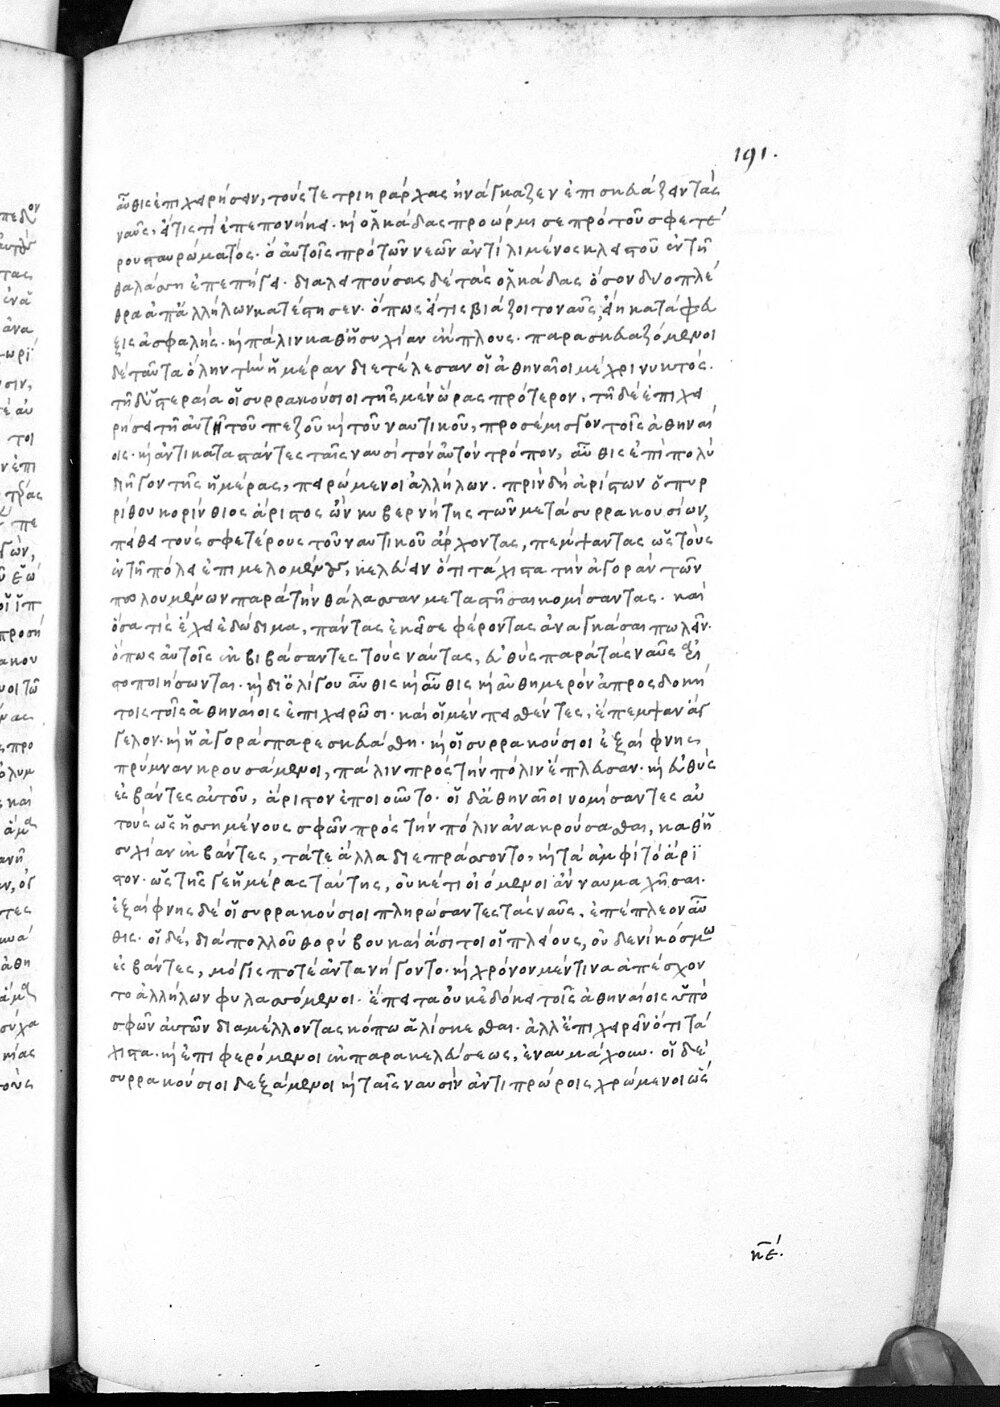 191.
αὖθις ἐπιχειρήσειν, τούς τε τριηράρχας ἠνάγκαζεν ἐπισκευάζειν τὰς
ναῦς, εἴ τίς τι ἐπεπονήκει. καὶ ὁλκάδας προώρμισε πρὸ τοῦ σφετέ
ρου σταυρώματος. ὃ αὐτοῖς πρὸ τῶν νεῶν ἀντὶ λιμένος κλειστοῦ ἐν τῇ
θαλάσσῃ ἐπεπήγει. διαλειπούσας δὲ τὰς ὁλκάδας ὅσον δύο πλέ
θρα ἀπ' ἀλλήλων κατέστησεν. ὅπως εἴ τις βιάζοιτο ναῦς, εἴη κατάφευ
ξις ἀσφαλής. καὶ πάλιν καθ' ἡσυχίαν ἔκπλους. παρασκευαζόμενοι
δὲ ταῦτα ὅλην τὴν ἡμέραν διετέλεσαν οἱ ἀθηναῖοι μέχρι νυκτός.
τῇ δ' ὑστεραίᾳ οἱ συρρακούσιοι τῆς μὲν ὥρας πρότερον, τῇ δὲ ἐπιχει
ρήσει τῇ αὐτῇ τοῦ πεζοῦ καὶ τοῦ ναυτικοῦ, προσέμισγον τοῖς ἀθηναί
οις. καὶ ἀντικαταστάντες ταῖς ναυσὶ τὸν αὐτὸν τρόπον, αὖθις ἐπὶ πολὺ
διῆγον τῆς ἡμέρας, πειρώμενοι ἀλλήλων. πρὶν δὴ ἀρίστων ὁ πυρ
ρίθου κορίνθιος ἄριστος ὢν κυβερνήτης τῶν μετὰ συρρακουσίων,
πείθει τοὺς σφετέρους τοῦ ναυτικοῦ ἄρχοντας, πέμψαντας ὡς τοὺς
ἐν τῇ πόλει ἐπιμελομένους, κελεύειν ὅτι τάχιστα τὴν ἀγορὰν τῶν
πωλουμένων παρὰ τὴν θάλασσαν μεταστῆσαι κομίσαντας. καὶ
ὅσα τις ἔχει ἐδώδιμα, πάντας ἐκεῖσε φέροντας ἀναγκάσαι πωλεῖν.
ὅπως αὐτοῖς ἐκβιβάσαντες τοὺς ναύτας, εὐθὺς παρὰ τὰς ναῦς ἀρι
στοποιήσωνται. καὶ δι' ὀλίγου αὖθις καὶ αὖθις καὶ αὐθημερὸν ἀπροσδοκή
τοις τοῖς ἀθηναίοις ἐπιχειρῶσι. καὶ οἱ μὲν πεισθέντες, ἔπεμψαν ἄγ
γελον. καὶ ἡ ἀγορὰ παρεσκευάσθη. καὶ οἱ συρρακούσιοι ἐξαίφνης
πρύμναν κρουσάμενοι, πάλιν πρὸς τὴν πόλιν ἔπλευσαν. καὶ εὐθὺς
ἐκβάντες αὐτοῦ, ἄριστον ἐποιοῦντο. οἱ δ' ἀθηναῖοι νομίσαντες αὐ
τοὺς ὡς ἡσσημένους σφῶν πρὸς τὴν πόλιν ἀνακρούσασθαι, καθ' ἡ
συχίαν ἐκβάντες, τά τε ἄλλα διεπράσσοντο, καὶ τὰ ἀμφὶ τὸ ἄρι
στον. ὡς τῆς γε ἡμέρας ταύτης, οὐκέτι οἰόμενοι ἂν ναυμαχῆσαι.
ἐξαίφνης δὲ οἱ συρρακούσιοι πληρώσαντες τὰς ναῦς, ἐπέπλεον αὖ
θις. οἱ δὲ, διὰ πολλοῦ θορύβου καὶ ἄσιτοι οἱ πλείους, οὐδενὶ κόσμῳ
ἐσβάντες, μόλις ποτὲ ἀντανήγοντο. καὶ χρόνον μέν τινα ἀπέσχον
το ἀλλήλων φυλασσόμενοι. ἔπειτα οὐκ ἐδόκει τοῖς ἀθηναίοις ὑπὸ
σφῶν αὐτῶν διαμέλλοντας κόπῳ ἁλίσκεσθαι. ἀλλ' ἐπιχειρεῖν ὅτι τά
χιστα. καὶ ἐπιφερόμενοι ἐκ παρακελεύσεως, ἐναυμάχουν. οἱ δὲ
συρρακούσιοι δεξάμενοι καὶ ταῖς ναυσὶν ἀντιπρώροις χρώμενοι ὡς
κε.